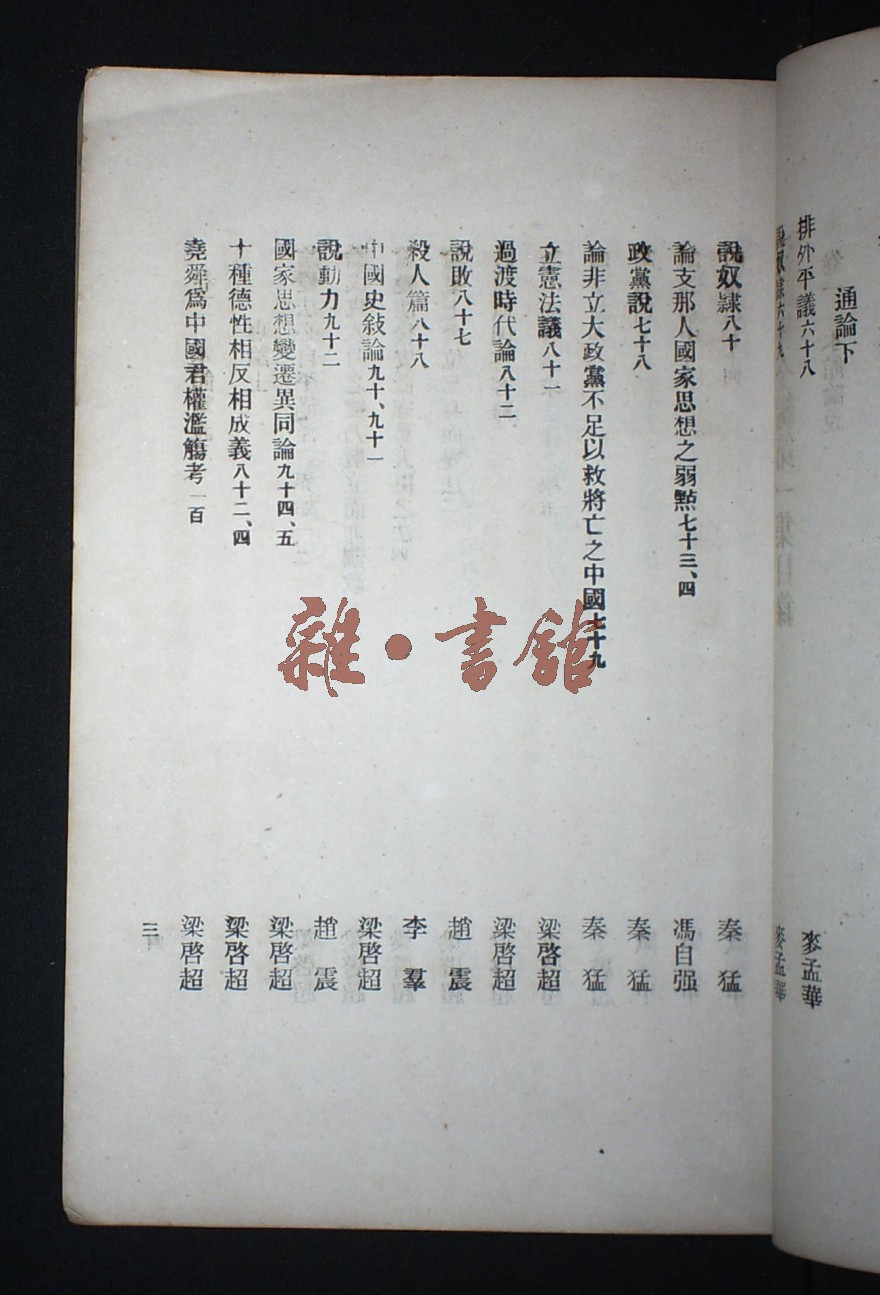 通論下
排外平議六十八 麥孟華
說奴隸六十九 麥孟華
說奴隸八十 秦猛
論支那人國家思想之弱點七十三、四 馮自强
政黨說七十八 秦猛
論非立大政黨不足以救將亡之中國七十九 秦猛
立憲法議八十一 梁啓超
過渡時代論八十二 梁啓超
說敗八十七 趙震
殺人篇八十八 李羣
中國史敍論九十、九十一 梁啓超
說動力九十二 趙震
國家思想變遷異同論九十四、五 梁啓超
十種德性相反相成義八十二、四 梁啓超
堯舜爲中國君權濫觴考一百 梁啓超
三
雜·書館